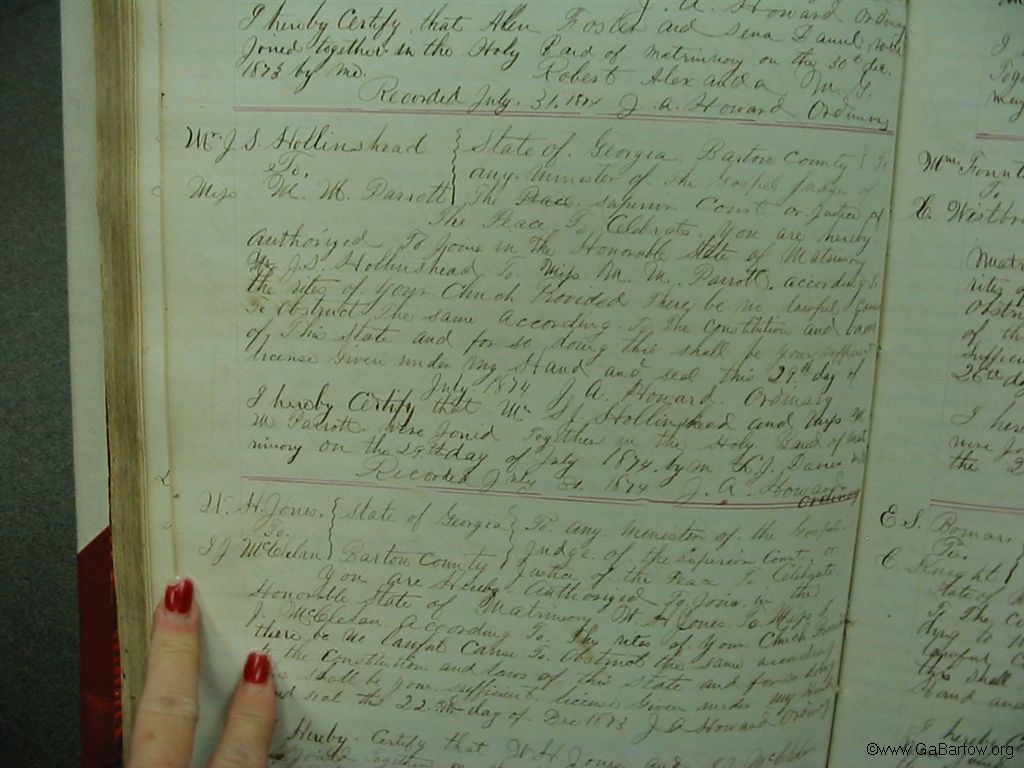 J. A. Howard Ordinary
I hereby Certify that Allen Foster and Sena Daniel were
Joned together in the Holy Band of matrimony on the 30th dec.
1873 by me. Robert Alexanda M. G.
Recorded July. 31. 1874 J. A. Howard Ordinary
Mr. J. S. Hollinshead
To.
Miss M. M. Parrott
State of. Georgia Bartow County To
any. minister of. The Gospel Judge of
The Peace. Superior Court or Justice of
The Peace To Celebrate. You are hereby
Authorized To Joine in The Honorable State of Matrimony
Mr J. S. Hollinshead To Miss M. M. Parrott. according to
the rites of Your Church Provided There be no lawful Cause
To Obstruct The Same According To The Constitution and laws
of This State and for so doing this shall be your sufficient
license Given under my Hand and seal this 29th day of
July 1874 J. A. Howard Ordinary
I hereby Certify that Mr S. J. Hollinshead and Miss M.
M Parrott. were Jonid Together in the Holy Band of Matri
mony on the 29th day of July 1874. by m
Recorded July 31 1874 J. A. Howard
Ordinary
W. H. Jones.
To.
S J McClelan
State of Georgia
Bartow County
To any minister of the Gospel
Judge of the Superior Court. or
Justice of the Peace To Celebrate.
You are Hereby Authorized To Join in the
Honorable State of Matrimony W. H Jones To Miss S
J. McClelan according To. The rites of your Church Provided
there be no lawful Cause To. Obstruct the same according
to the Constitution and laws of this State and for so doing
this shall be your sufficient license Given under my Hand
and seal this 22 day of. Dec 1873 J A Howard Ordinary
I Hereby Certify that W. H Jones and S J
were Joined Together
Mr
To.
E. Westbro
E S. Bomar
To.
C Knight
©www.GaBartow.org